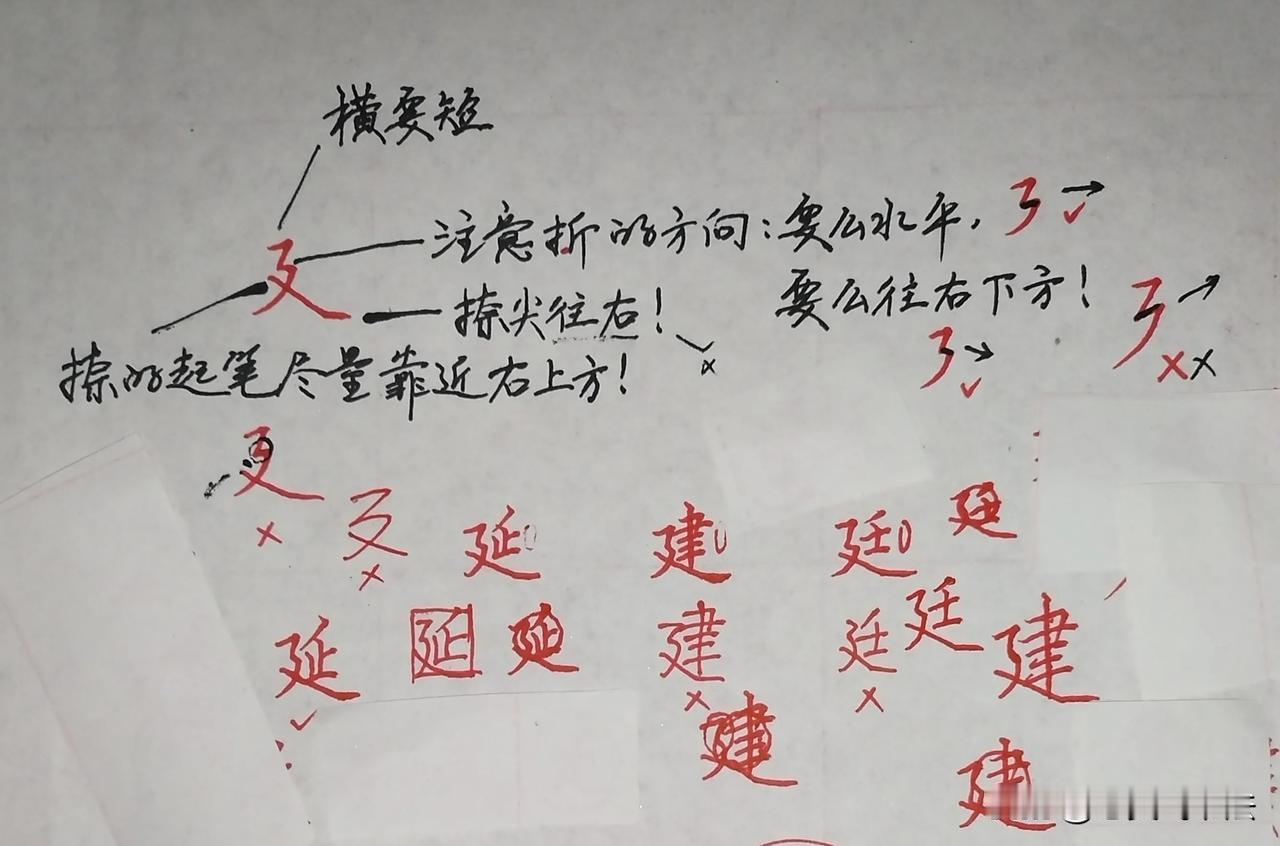 横要短
注意折的方向:要么水平,
要么往右下方!
捺尖往右!
捺的起笔尽量靠近右上方!
廴
廴 廴 延 建 廷 延
延 延 延 建 廷 廷 建
建
建